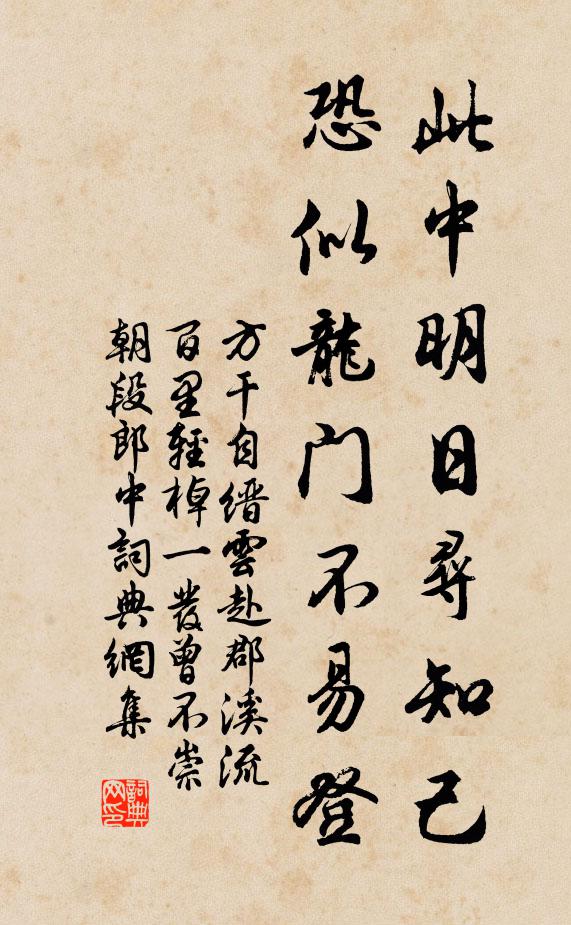 此中明日尋知己
恐似龍门不易登
方干自缙雲赴郡溪流
百里輕棹一發曾不崇
朝段郎中詞典網集
詞典网印